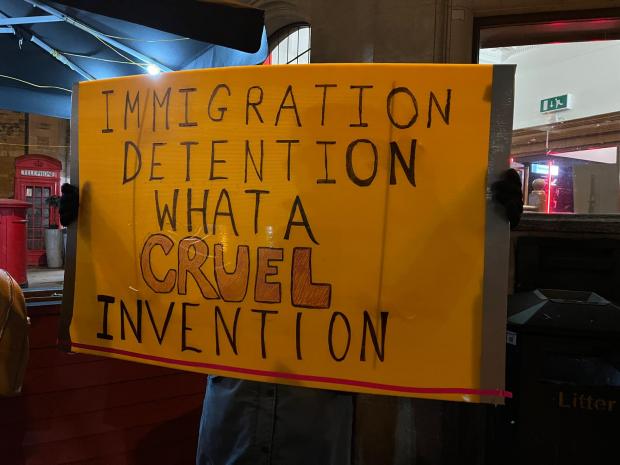 TELEPHONE
IMMIGRATION
DETENTION
WHAT A
CRUEL
INVENTION
Litter